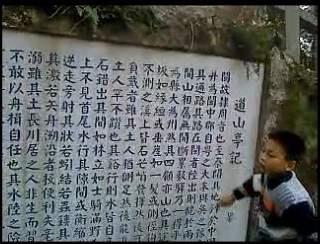 道山亭記
閩故隸周者七至秦開其地列于中
并為閩中郡自粵之太末與吳之豫
其通路其路在閩者陸出則阸於兩
間山相屬無間斷累數驛乃一得平
為縣大為州然其四顧亦山也其
坂如緣絙或垂崖如一髮或側徑鉤
不測之溪上皆石芒峭發擇然後可
負戴者雖其土人猶側足然後能
土人罕不躓也其溪行則水皆自
石錯出其間如林立如士騎滿野
上下不見首尾水行其隙間或衡縮
逆走旁射其狀若蚓結若蟲鏤其
其激若矢舟溯沿者投便利失毫
溺雖其土長川居之人非生而
不敢以舟楫自任也其水陸之險